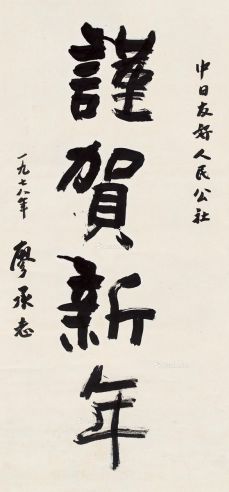 中日友好人民公社
謹賀新年
一九七八年
廖承志